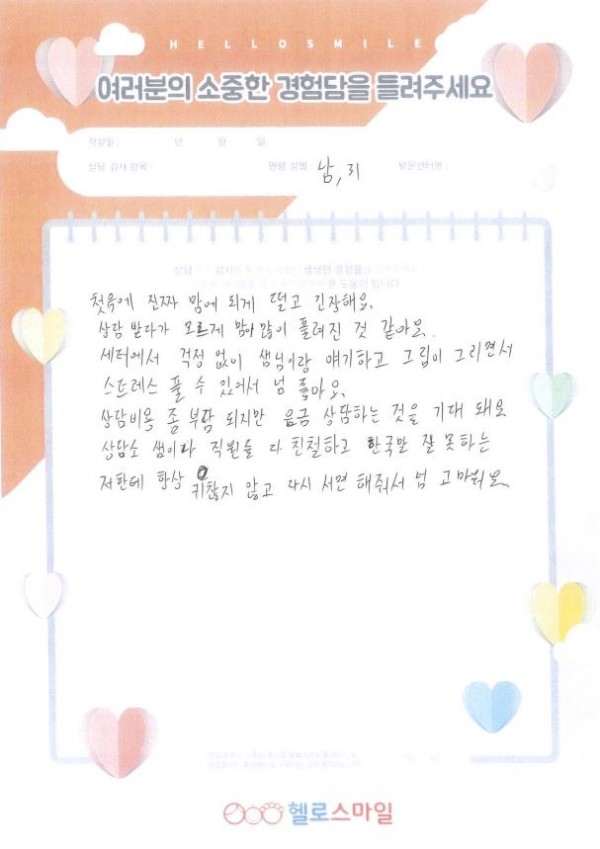 HELLOSMILE
여러분의 소중한 경험담을 들려주세요
작성일 : 년 월 일
상담 검사 항목 : 연령 성별 남, 31 방문센터명 :
첫욕에 진짜 맘에 되게 떨고 긴장해요.
상담 받다가 모르게 맘이 많이 풀려진 것 같아요.
세터에서 걱정 없이 샘님이랑 얘기하고 그림이 그리면서
스트레스 풀 수 있어서 넘 좋아요.
상담비용 좀 부담 되지만 음금 상담하는 것을 기대 돼요
상담소 샘이다 직원들 다 친철하고 한국말 잘 못하는
저한데 항상 귀찮지 않고 다시 서면 해줘서 넘 고마워요
헬로스마일